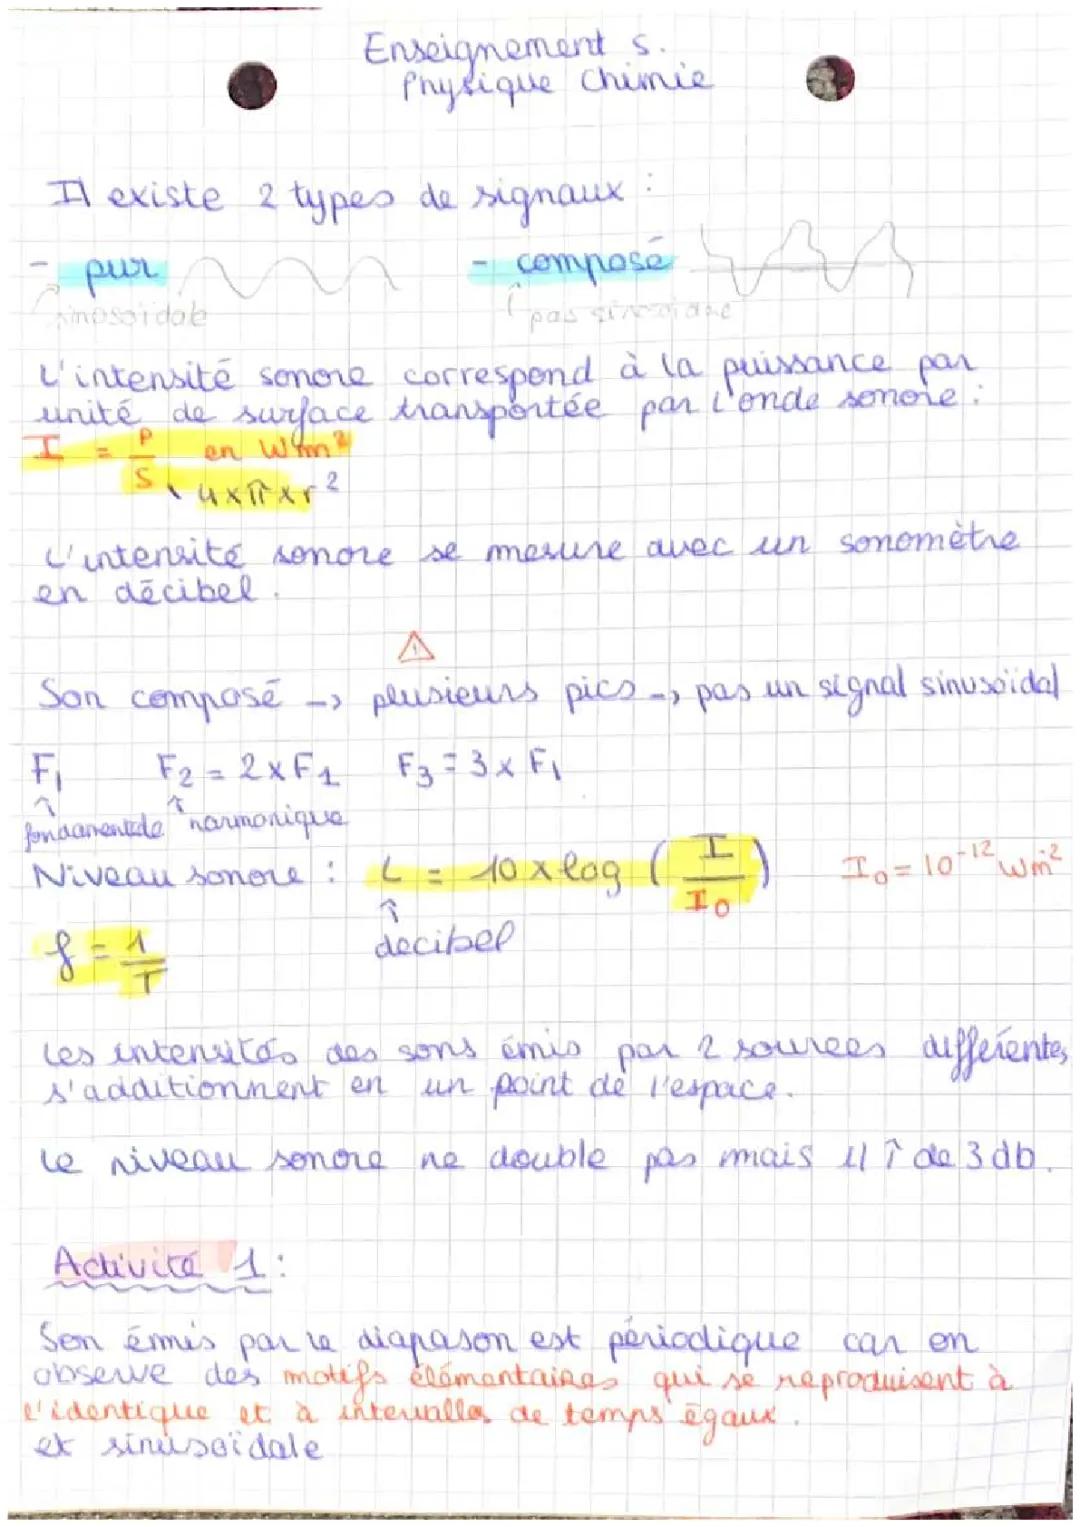 Enseignement s.
Physique Chimie
Il existe 2 types de signaux :
- pur - composé
sinosoïdale pas sinosoidale
L'intensité sonore correspond à la puissance par
unité de surface transportée par l'onde sonore :
I = P/S en W/m²
4xπxr²
L'intensité sonore se mesure avec un sonomètre
en décibel.
Son composé -> plusieurs pics -> pas un signal sinusoïdal
F1 F2 = 2xF1 F3 = 3xF1
fondamentale harmonique
Niveau sonore : L = 10 x log (I/I0) I0 = 10^-12 Wm²
decibel
f = 1/T
Les intensités des sons émis par 2 sources différentes,
s'additionnent en un point de l'espace.
Le niveau sonore ne double pas mais il ↑ de 3 db.
Activité 1 :
Son émis par le diapason est périodique car on
observe des motifs élémentaires qui se reproduisent à
l'identique et à intervalles de temps égaux.
et sinusoïdale